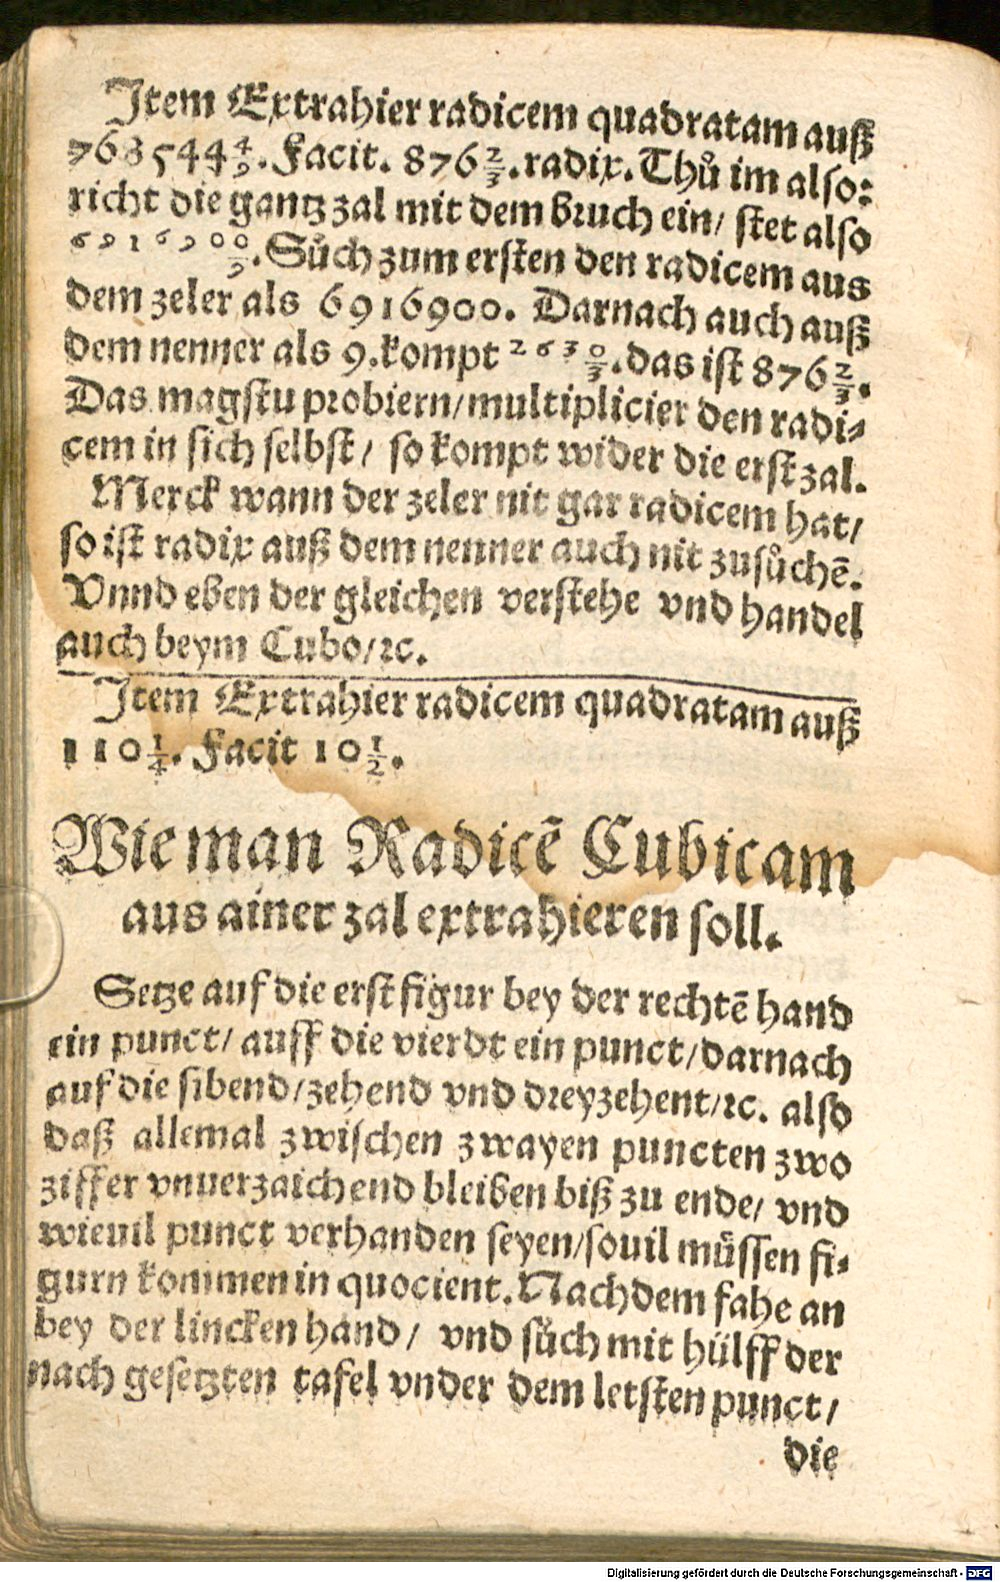 Item Extrahier radicem quadratam auß
7685444 4/9. Facit. 876 2/3. radix. Thů im also:
richt die gantz zal mit dem bruch ein/ stet also
6916900/9. Sůch zum ersten den radicem aus
dem zeler als 6916900. Darnach auch auß
dem nenner als 9. kompt 2630/3. das ist 876 2/3.
Das magstu probiern/multiplicier den radi⸗
cem in sich selbst/ so kompt wider die erst zal.
Merck wann der zeler nit gar radicem hat/
so ist radix auß dem nenner auch nit zusůchē.
Vnnd eben der gleichen verstehe vnd handel
auch beym Cubo/ꝛc.
Item Extrahier radicem quadratam auß
110 1/4. Facit 10 1/2.
Wie man Radicē Cubicam
aus ainer zal extrahieren soll.
Setze auf die erst figur bey der rechtē hand
ein punct/ auff die vierdt ein punct/darnach
auf die sibend/zehend vnd dreyzehent/ꝛc. also
daß allemal zwischen zwayen puncten zwo
ziffer vnuerzaichend bleiben biß zu ende/ vnd
wieuil punct verhanden seyen/souil müssen fi⸗
gurn kommen in quocient. Nachdem fahe an
bey der lincken hand/ vnd sůch mit hülff der
nach gesetzten tafel vnder dem letsten punct/
die
Digitalisierung gefördert durch die Deutsche Forschungsgemeinschaft - DFG